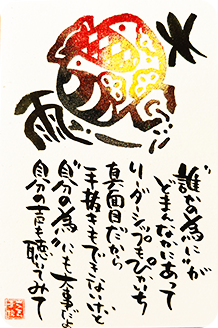 "誰かの為に"が
どまんなかにあって
リーダーシップもぴかいち
真面目だから
手抜きもできないけど
自分の為にも大事だよ
自分の声を聴いてみて